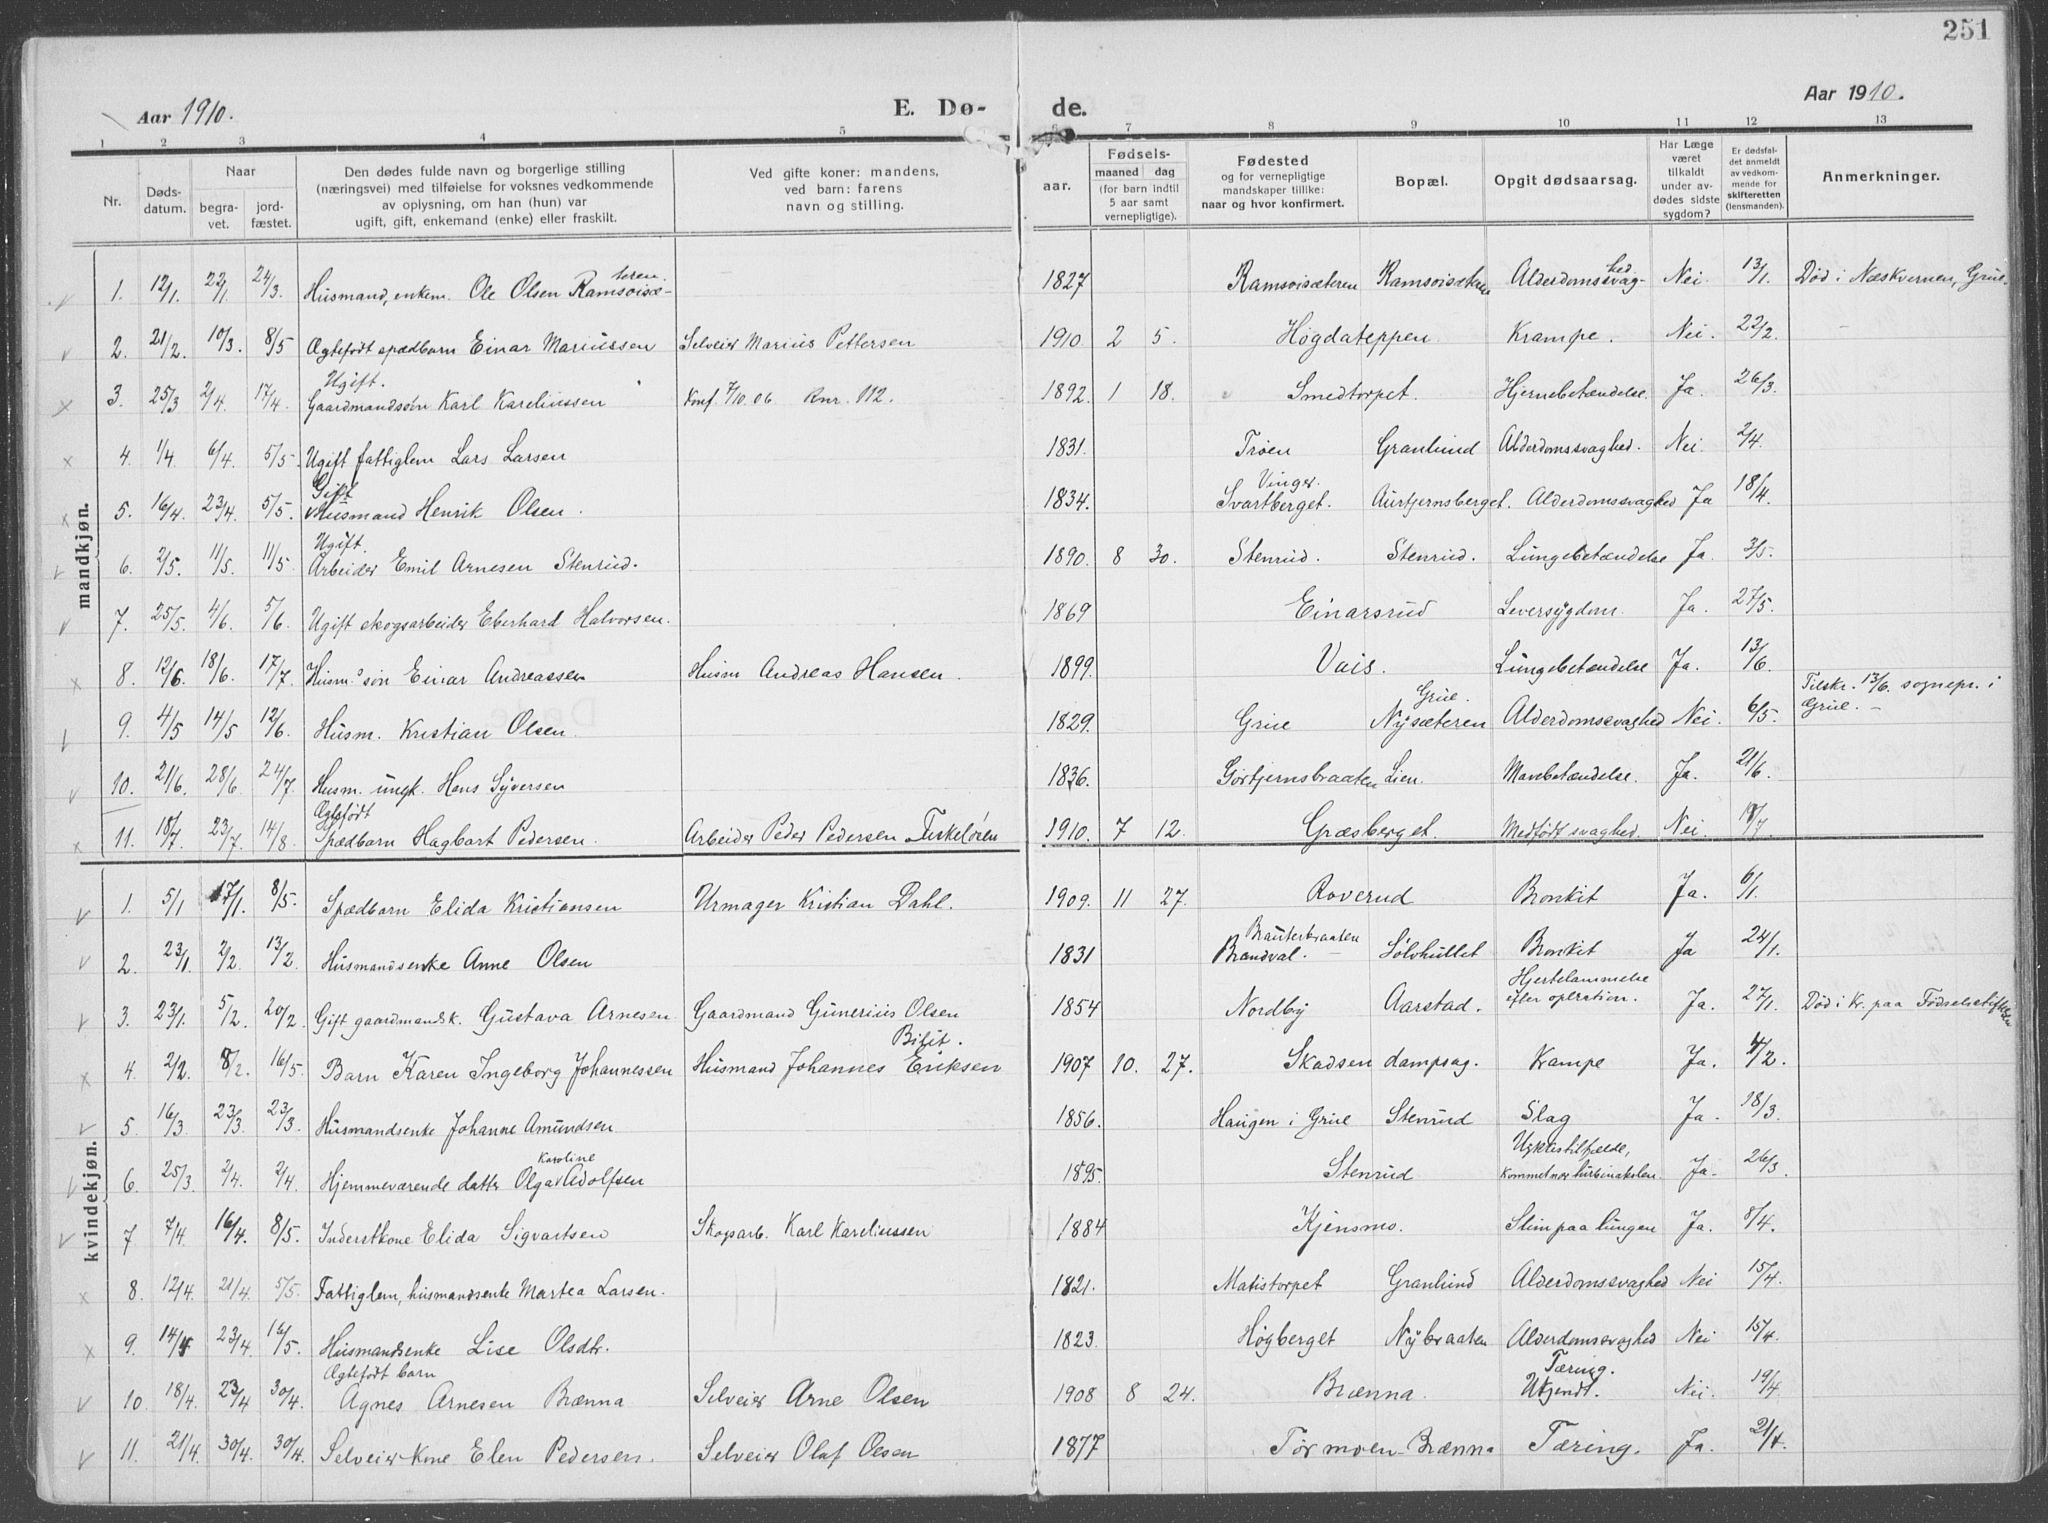 251
Aar 1910. E. Dø- de. Aar 1910.
1 2 3 4 5 6 7 8 9 10 11 12 13
Nr. Døds-datum. Naar begra-vet. jord-fæstet. Den dødes fulde navn og borgerlige stilling (næringsvei) med tilføielse for voksnes vedkommende av oplysning, om han (hun) var ugift, gift, enkemand (enke) eller fraskilt. Ved gifte koner: mandens, ved barn: farens navn og stilling. aar. Fødsels- maaned dag (for barn indtil 5 aar samt vernepligtige). Fødested og for vernepligtige mandskaper tillike: naar og hvor konfirmert. Bopæl. Opgit dødsaarsag. Har Læge været tilkaldt under av-dødes sidste sygdom? Er dødsfal-det anmeldt av vedkom-mende for skifteretten (lensmanden). Anmerkninger.
mandkjøn.
1. 12/1. 22/1. 24/3. Husmand, enkem. Ole Olsen Ramsøisæ-teren. 1827 Ramsøisæteren Ramsøisæteren Alderdomssvag-hed Nei 13/1. Død i Næskvernen, Grue.
2. 21/2. 10/3. 8/5 Ægtefødt spædbarn Einar Mariussen Selveier Marius Pettersen 1910. 2 5. Høgdateppen Krampe. Nei. 22/2.
3. 25/3 2/4. 17/4. Ugift. Gaardmandssøn Karl Kareliussen Konf. 7/10.06 Rnr. 112. 1892. 1 18. Smedtorpet. Hjernebetændelse. Ja. 26/3.
4. 1/4. 6/4. 5/5. Ugift fattiglem Lars Larsen 1831. Trøen Granlund Alderdomssvaghed. Nei. 2/4.
5. 16/4. 23/4. 5/5. Gift Husmand Henrik Olsen. 1834. Vinger. Svartberget. Aurtjernsberget. Alderdomssvaghed Ja 18/4.
6. 2/5. 11/5. 11/5 Ugift. Arbeider Emil Arnesen Stenrud. 1890. 8 30. Stenrud. Stenrud. Lungebetændelse Ja. 3/5.
7. 25/5. 4/6. 5/6 Ugift skogsarbeider Eberhard Halvorsen. 1869 Einarsrud Leversygdom. Ja. 27/5.
8. 12/6. 18/6. 17/7. Husm.s søn Einar Andreassen Husm Andreas Hansen. 1899. Vais. Lungebetændelse Ja. 13/6
9. 4/5 14/5 12/6. Husm. Kristian Olsen. 1829. Grue Grue. Nysæteren Alderdomssvaghed Nei. 6/5. Tilskr. 13/6. sognepr. i Grue. —
10. 21/6. 28/6. 24/7. Husm. ungk. Hans Syversen 1836. Gørtjernsbraaten Lien. Mavebetændelse. Ja. 21/6.
11. 18/7. 23/7. 14/8. Ægtefødt Spædbarn Hagbart Pedersen. Arbeider Peder Pedersen Fiskeløren 1910. 7 12. Græsberget. Medfødt svaghed. Nei. 19/7.
kvindekjøn.
1. 5/1 17/1. 8/5. Spædbarn Elida Kristiansen Urmager Kristian Dahl. 1909. 11 27. Roverud Bronkit Ja. 6/1.
2. 23/1. 2/2. 13/2. Husmandsenke Anne Olsen 1831 Brauterbraaten Brandval. Sølvhullet Bronkit Ja 24/1.
3. 23/1. 5/2. 20/2. Gift gaardmandsk. Gustava Arnesen Gaardmand Gunerius Olsen 1854 Nordby Aarstad. Hjertelammelse efter operation. Ja. 27/1. Død i Kr. paa Fødselsstiftelsen
4. 2/2. 8/2. 16/5. Barn Karen Ingeborg Johannessen Husmand Johannes Eriksen Bilit. 1907 10. 27. Skadsen dampsag. Krampe Ja. 4/2.
5. 16/3. 23/3. 23/3. Husmandsenke Johanne Amundsen 1856. Haugen i Grue Stenrud Slag Ja. 18/3.
6. 25/3. 2/4. 2/4. Hjemmeværende datter Olga Karoline Adolfsen 1895. Stenrud Ulykkestilfælde, kommet nær turbinakslen. Ja. 26/3.
7 7/4. 16/4. 8/5. Inderstkone Elida Sigvartsen Skogsarb. Karl Kareliussen 1884 Kjensmo. Slim paa lungen Ja. 8/4.
8. 12/4. 21/4. 5/5. Fattiglem, husmandsenke Martea Larsen. 1821. Matistorpet Granlund Alderdomssvaghed Nei 15/4.
9. 14/4 23/4. 16/5. Husmandsenke Lise Olsdtr. 1823. Høgberget Nybraaten Alderdomssvaghed Nei 15/4.
10. 18/4. 23/4 30/4. Ægtefødt barn Agnes Arnesen Brænna Selveier Arne Olsen 1908 8 24. Brænna. Tæring. Ukjendt. Nei. 19/4.
11. 21/4. 30/4. 30/4. Selveier-Kone Elen Pedersen. Selveier Olaf Olsen 1877 Tørmoen-Brænna Tæring. Ja. 21/4.